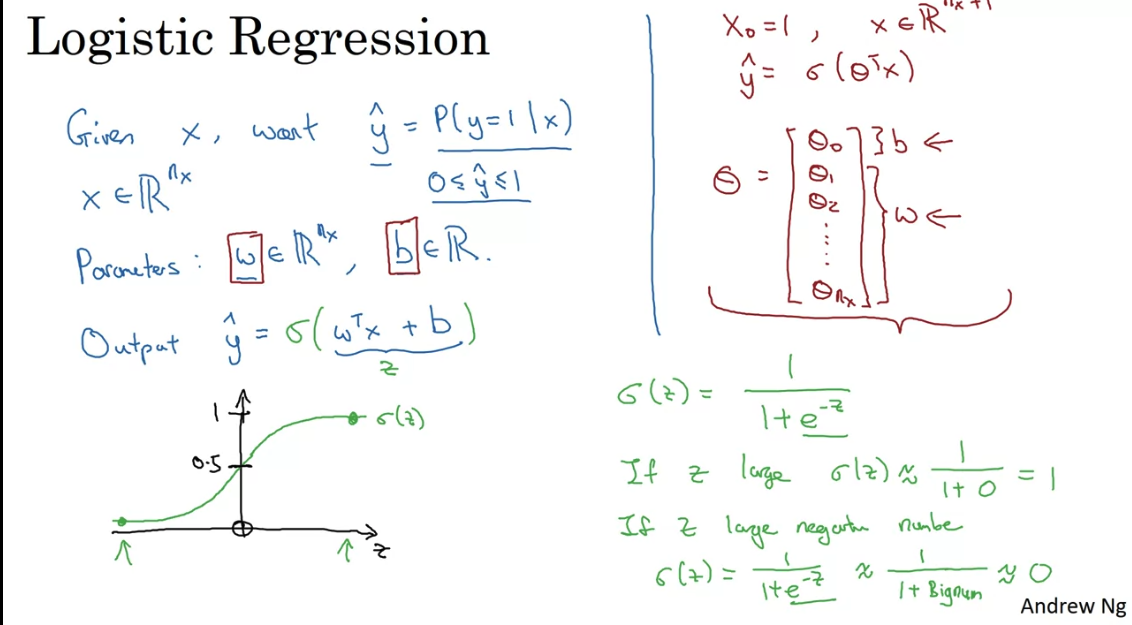 Logistic Regression
Given x, want ŷ = P(y=1|x)
x ∈ ℝ^nx
0 ≤ ŷ ≤ 1
Parameters: w ∈ ℝ^nx, b ∈ ℝ.
Output ŷ = σ(wᵀx + b)
z
1
σ(z)
0.5
z
X₀ = 1, x ∈ ℝ^nx+1
ŷ = σ(θᵀx)
θ = [θ₀ θ₁ θ₂ ⋮ θnx]
} b ←
} w ←
σ(z) = 1/(1+e^-z)
If z large σ(z) ≈ 1/(1+0) = 1
If z large negative number
σ(z) = 1/(1+e^-z) ≈ 1/(1+Bignum) ≈ 0
Andrew Ng